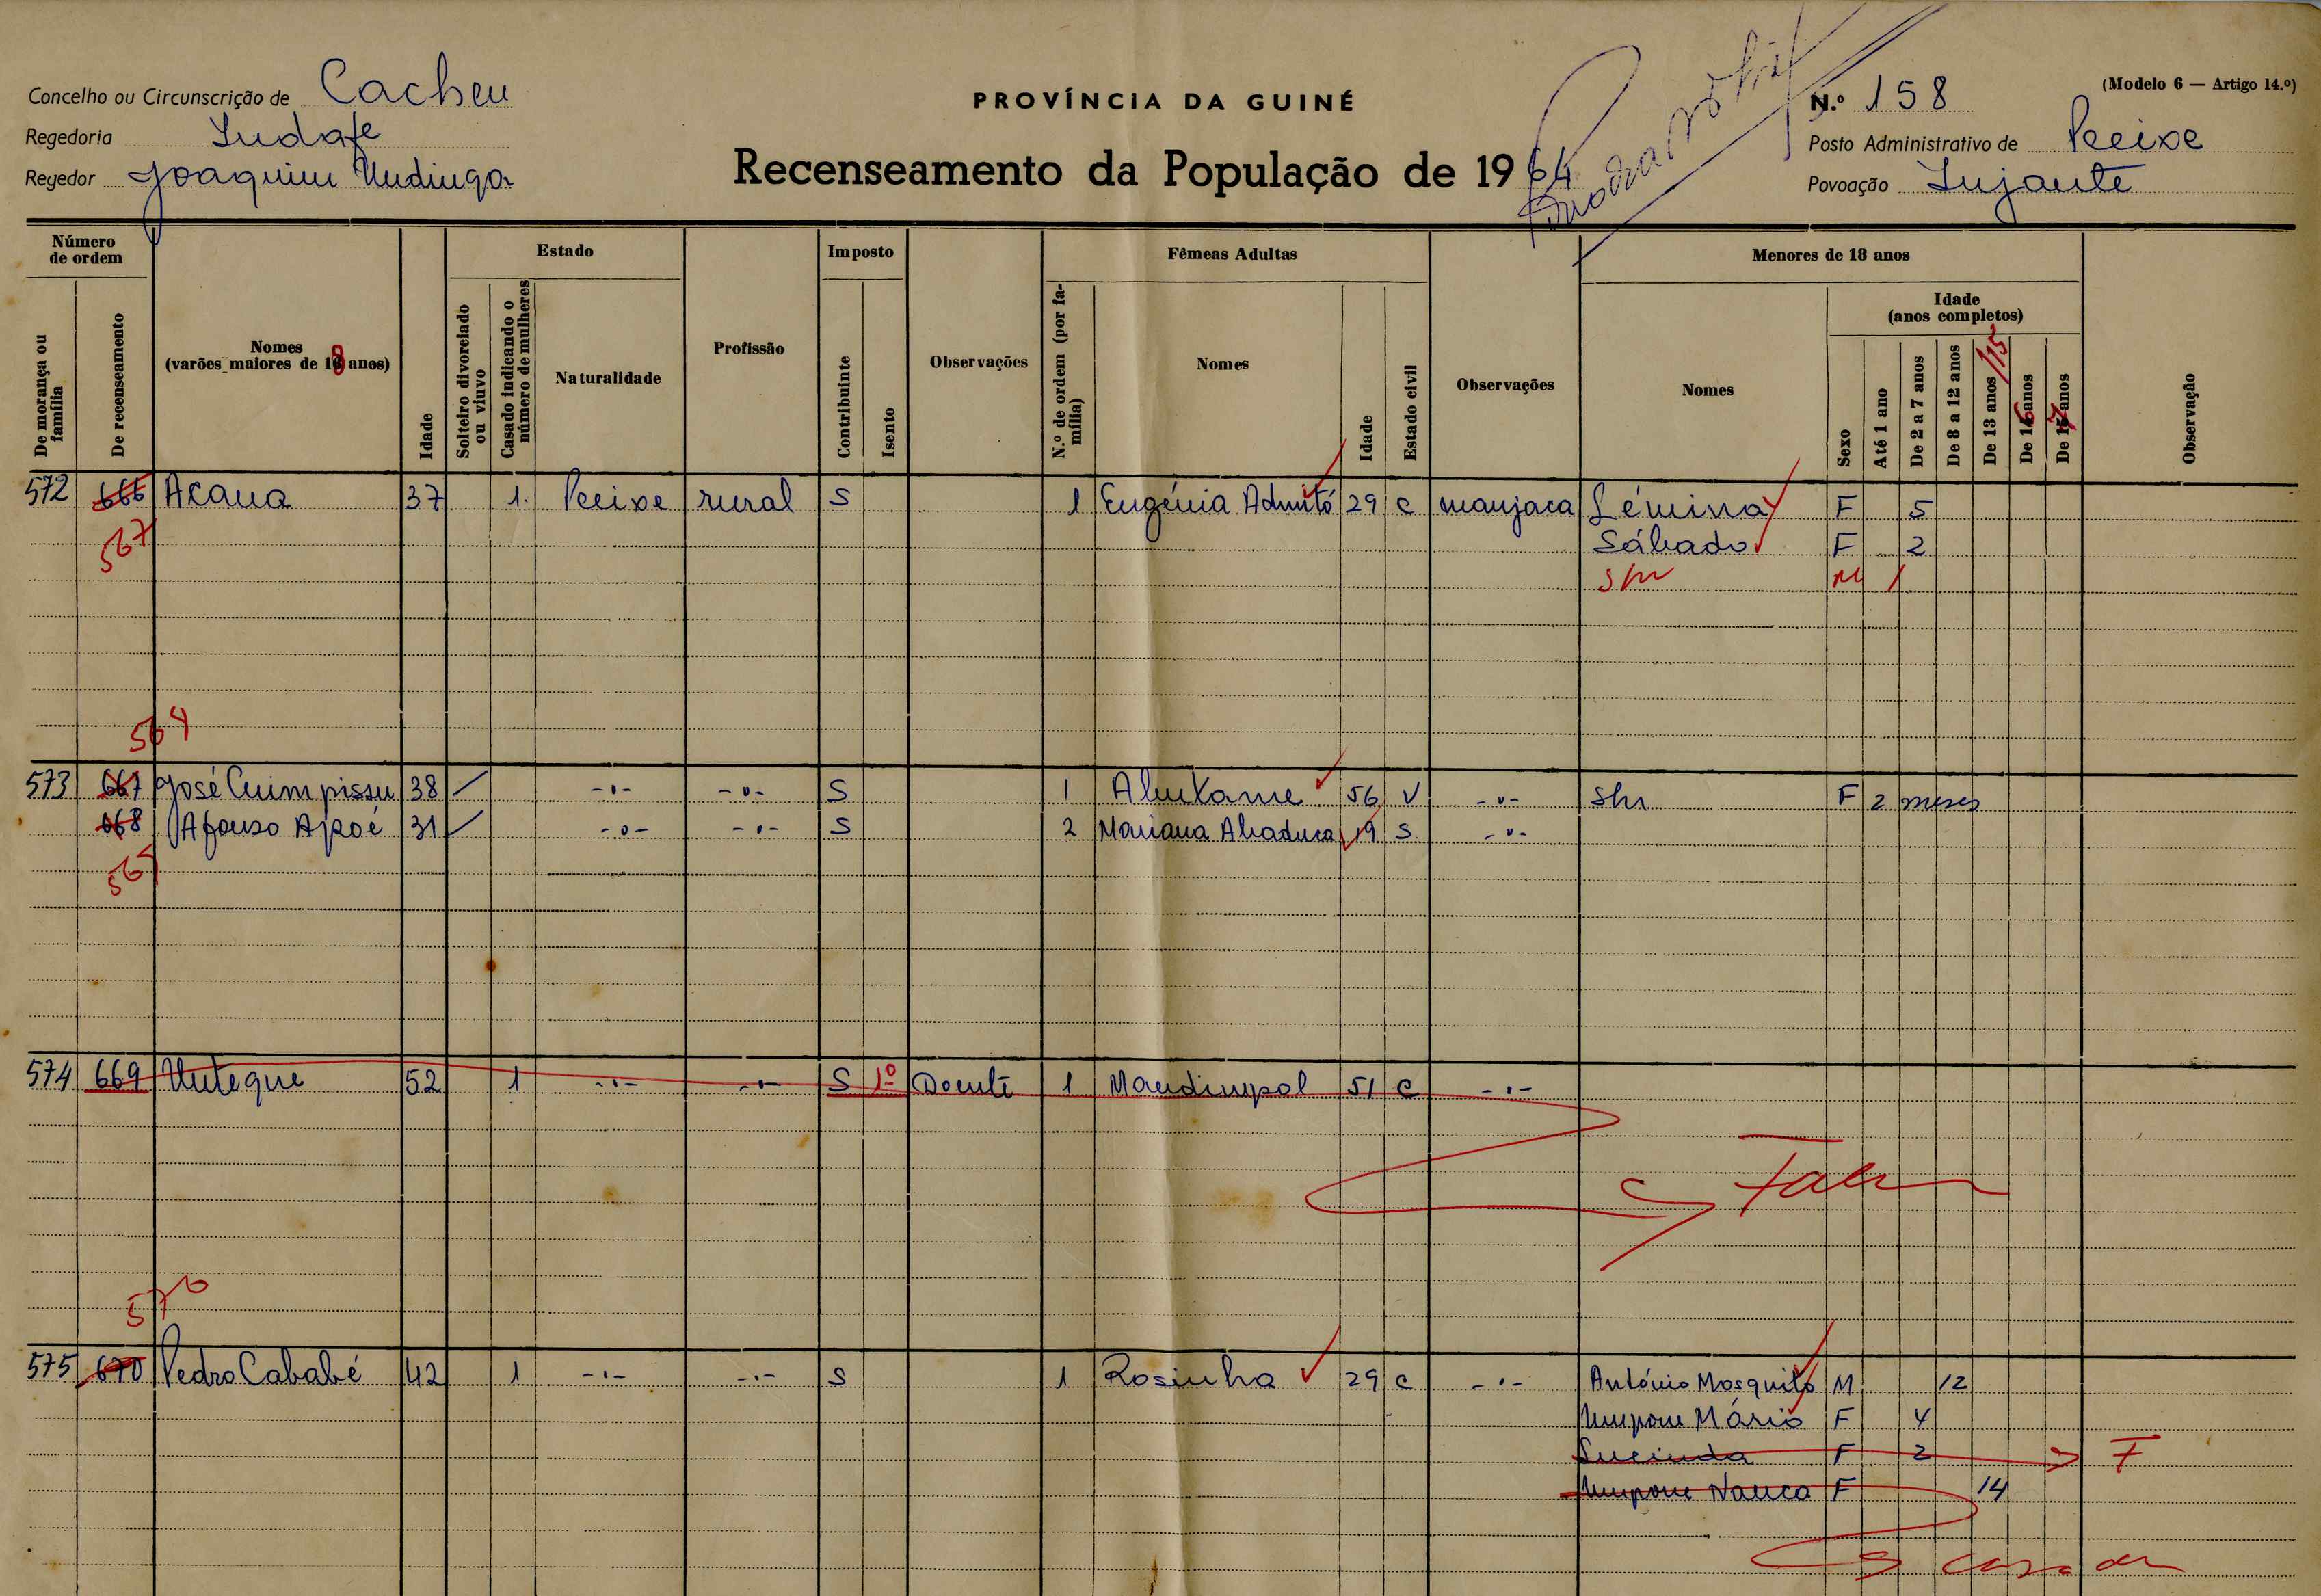 Concelho ou Circunscrição de Cacheu
Regedoria
Regedor Joaquim Undinga
PROVÍNCIA DA GUINÉ
Recenseamento da População de 1964
(Modelo 6 — Artigo 14.º)
N.º 158
Posto Administrativo de Pecixe
Povoação
Número de ordem
De morança ou família
De recenseamento
Nomes
(varões maiores de 18 anos)
Idade
Estado
Solteiro divorciado ou viuvo
Casado indicando o número de mulheres
Naturalidade
Profissão
Imposto
Contribuinte
Isento
Observações
Fêmeas Adultas
N.º de ordem (por família)
Nomes
Idade
Estado civil
Observações
Menores de 18 anos
Nomes
Sexo
Idade
(anos completos)
Até 1 ano
De 2 a 7 anos
De 8 a 12 anos
De 13 anos /15
De 16 anos
De 17 anos
Observação
572 666 Acaua 37 1 Pecixe rural S 1 Eugénia 29 C manjaca F 5
567 Sábado F 2
s/n M 1
573 667 José Cuimpissu 38 S 1 56 V -"- s/n F 2 meses
668 Afonso Apoé 31 -"- -"- S 2 Mariana 19 S -"-
574 669 Unteque 52 1 -"- -"- S 1º Doente 1 51 C -"-
570
575 670 Pedro Cababé 42 1 -"- -"- S 1 Rosinha 29 C -"- António Mosquito M 12
Mário F 4
Lucinda F 2 F
F 14
casada